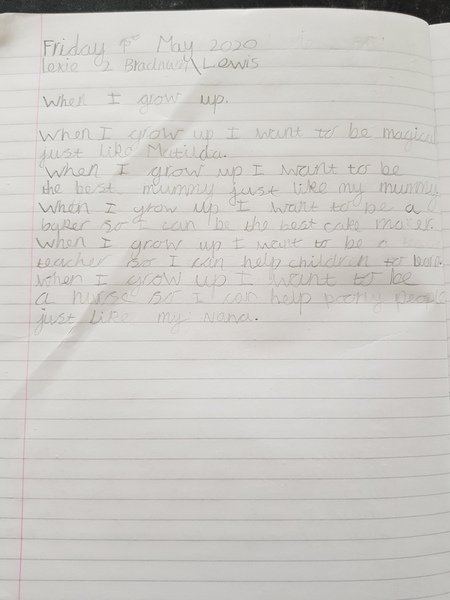 Friday 1st May 2020
Lexie 2 Bradnury\Lewis
When I grow up.
When I grow up I want to be magical
just like Matilda.
When I grow up I want to be
the best mummy just like my mummy
When I grow up I want to be a
baker so I can be the best cake maker.
When I grow up I want to be a
teacher so I can help children to learn
When I grow up I want to be
a nurse so I can help poorly people
just like my Nana.